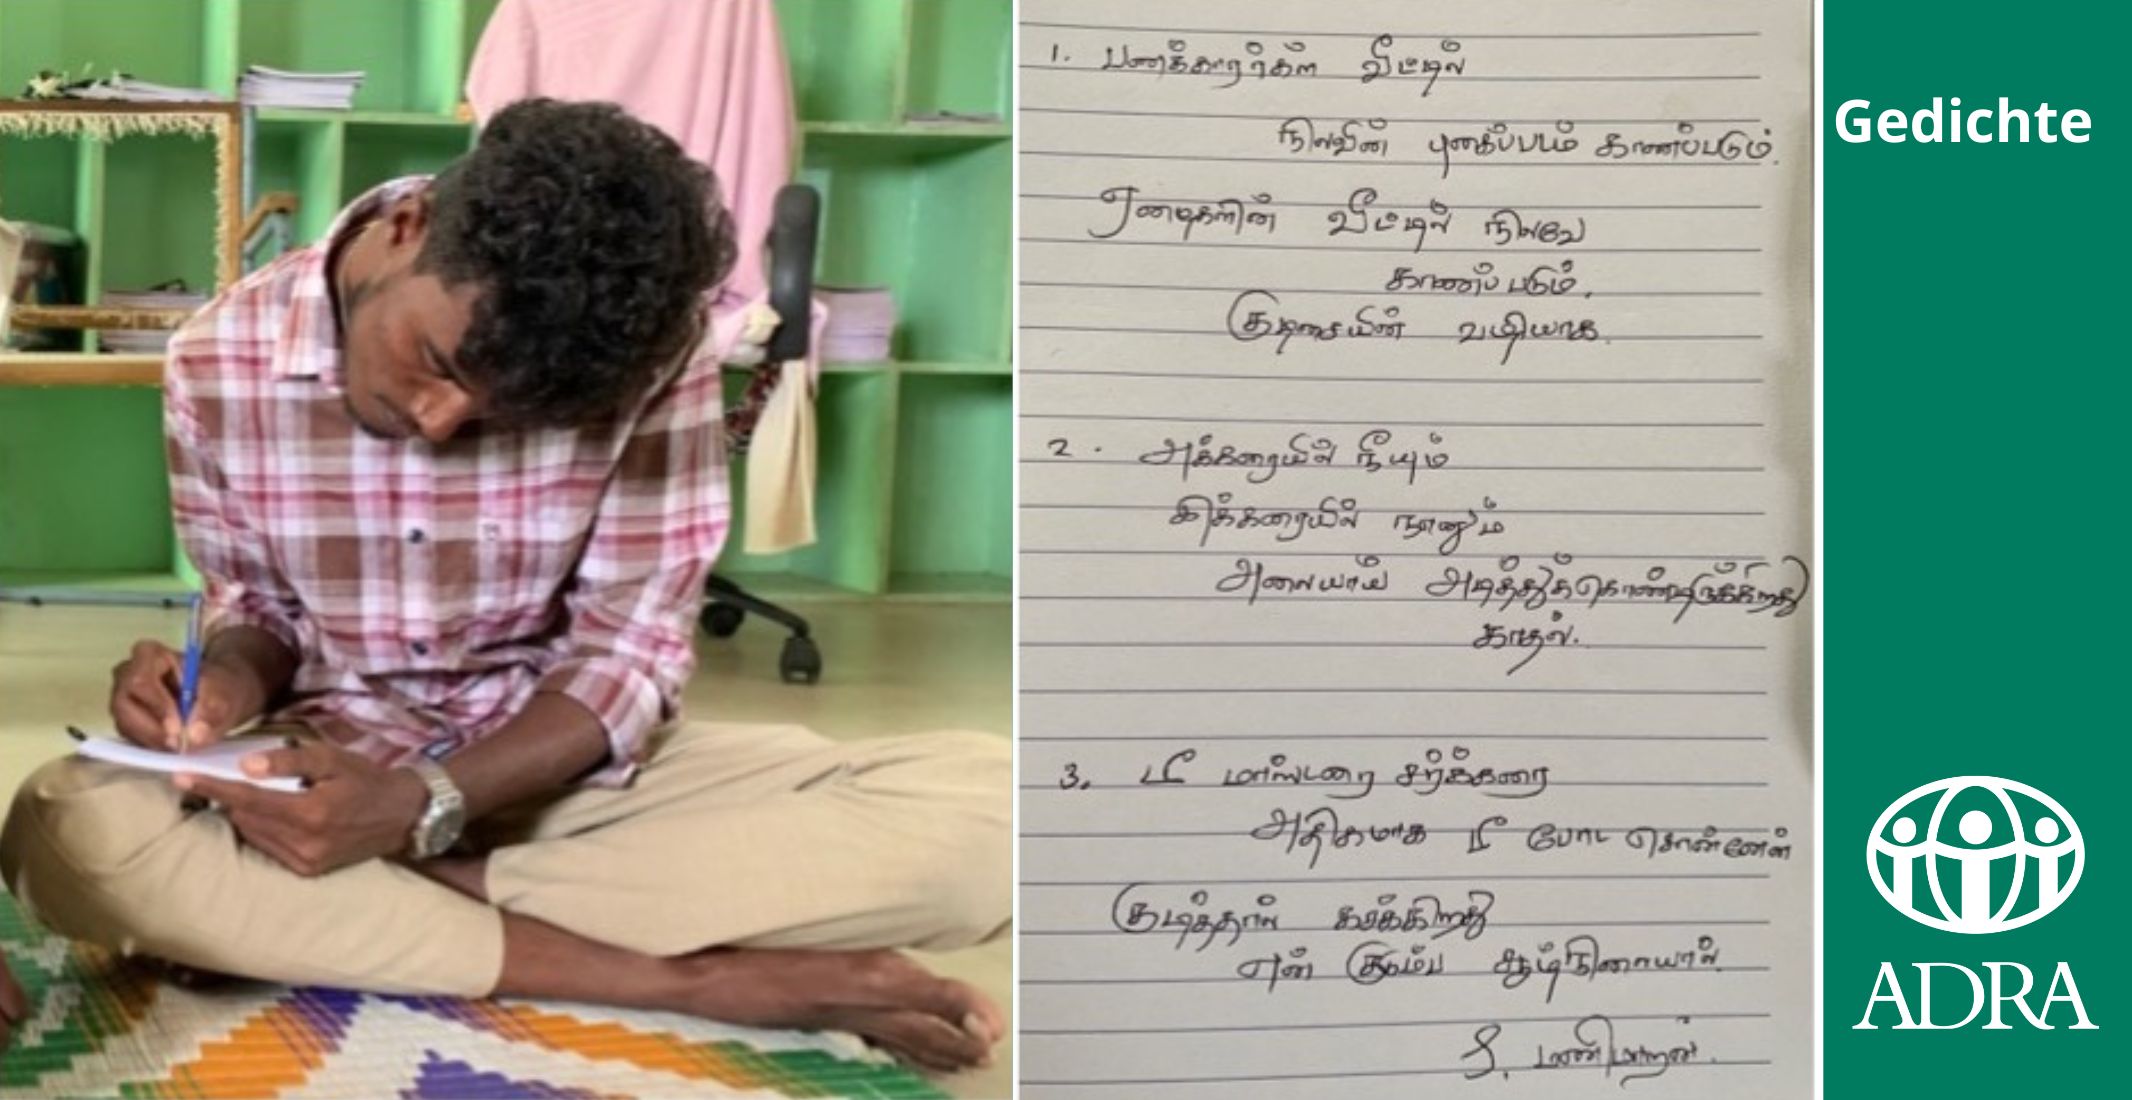 1. பணக்காரர்கள் வீட்டில்
நிலவின் புகைப்படம் காணப்படும்.
ஏழைகளின் வீட்டில் நிலவே
காணப்படும்.
குடிசையின் வழியாக.
2. அக்கரையில் நீயும்
இக்கரையில் நானும்
அலையாய் அடித்துக்கொண்டிருக்கிறது
காதல்.
3. டீ மாஸ்டரை சர்க்கரை
அதிகமாக டீ போட சொன்னேன்
குடித்தால் கசக்கிறது
என் குடும்ப சூழ்நிலையால்.
S. மணிமாறன்.
Gedichte
ADRA